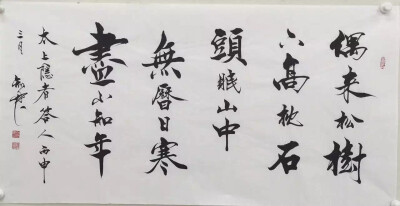 偶来松樹
下高枕石
頭眠山中
無曆日寒
盡不知年
太上隐者答人丙申
三月